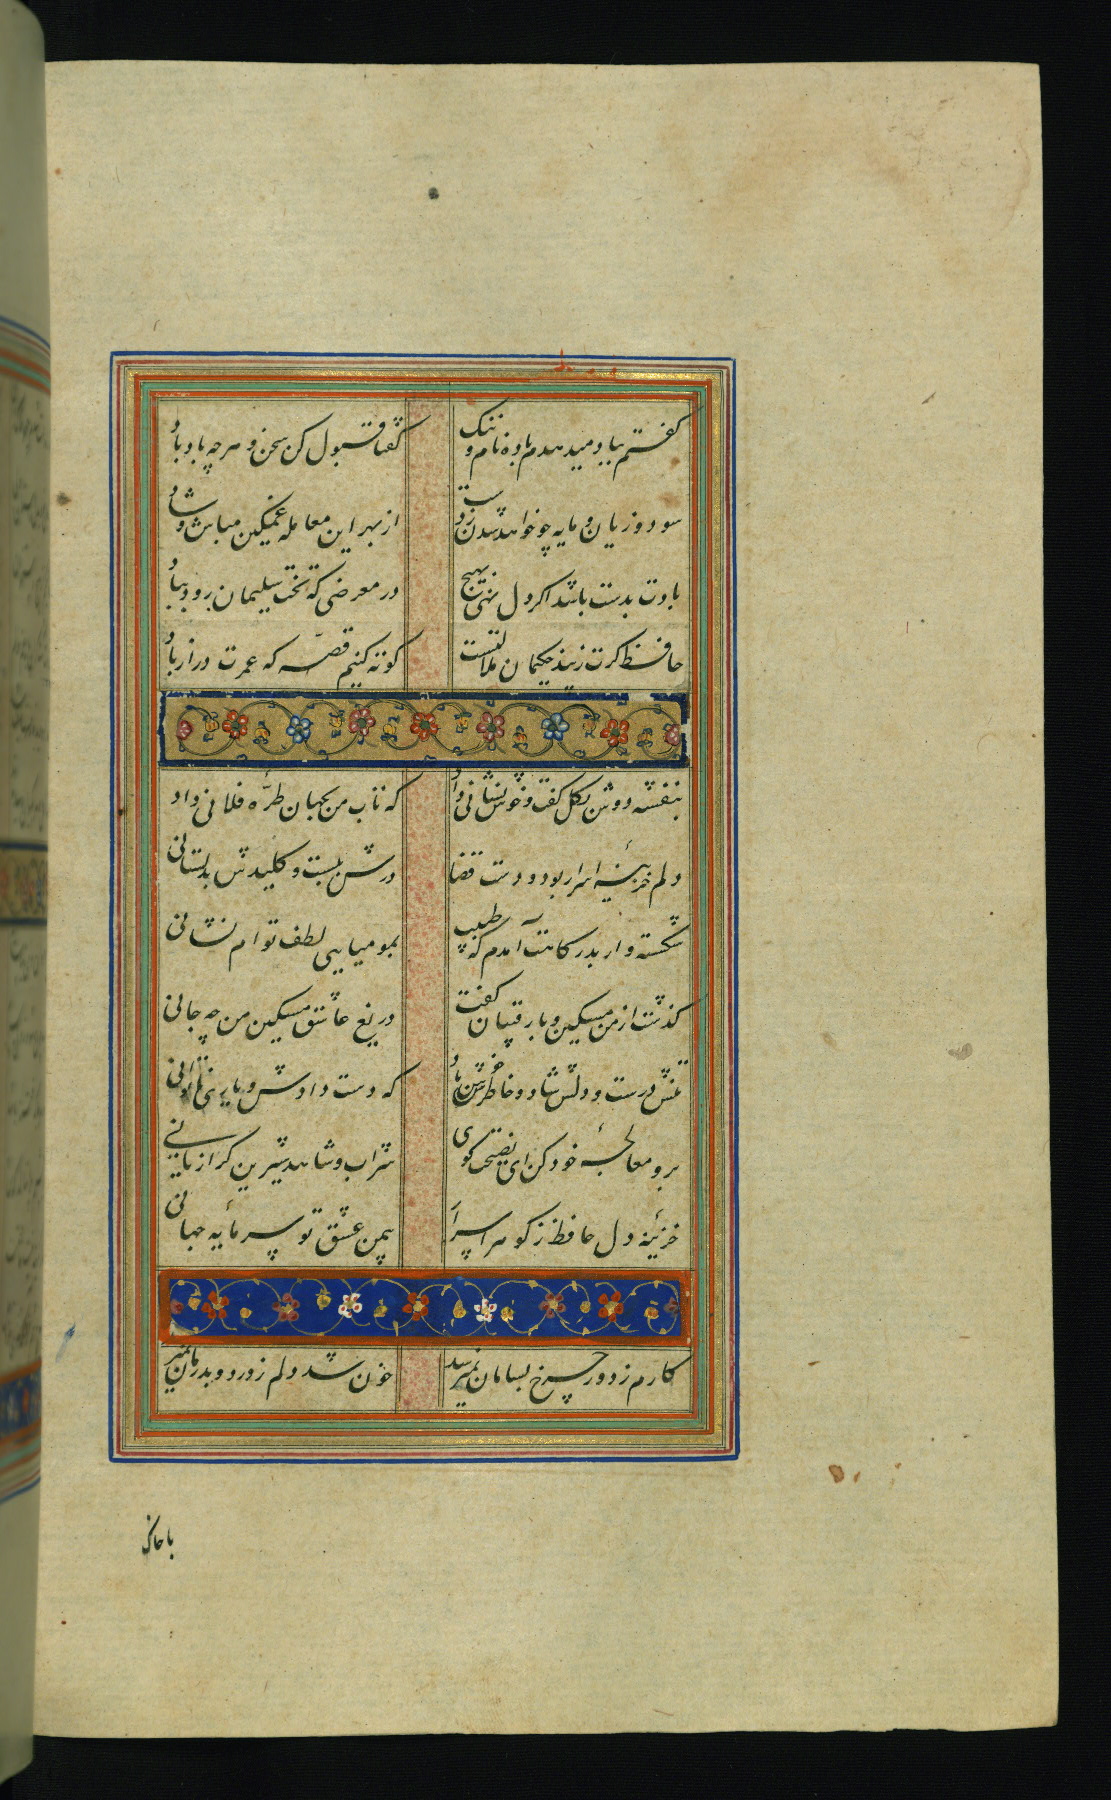 کفتم بباد میدهدم باده نام و ننک
کفتا قبول کن سخن و هر چه باد باد
سود و زیان و مایه چو خواهد شدن ز دست
از بهر این معامله غمکین مباش و شاد
بادت بدست باشد اکر دل نهی بهیچ
در معرضی که تخت سلیمان رود بباد
حافظ کرت ز پند حکیمان ملالتست
کوته کنیم قصّه که عمرت دراز باد
بنفشه دوش بکل کفت و خوش نشانی داد
که تاب من بجهان طرّه فلانی داد
دلم خزینهٔ اسرار بود و دست قضا
درش ببست و کلیدش بدلستانی
شکسته وار بدرکاهت آمدم که طبیب
بمومیایی لطف توام نشانی
کذشت از من مسکین و با رقیبان کفت
دریغ عاشق مسکین من چه جانی
تنش درست و دلش شاد و خاطرش خوش باد
که دست دادش و یاری ناتوانی
برو معالجهٔ خود کن ای نصیحت کوی
شراب و شاهد شیرین کرا زیانی
خزینهٔ دل حافظ ز کوهر اسرار
بیمن عشق تو سرمایهٔ جهانی
کارم ز دور چرخ بسامان نمیرسد
خون شد دلم ز درد و بدرمان نمیرسد
با خاک